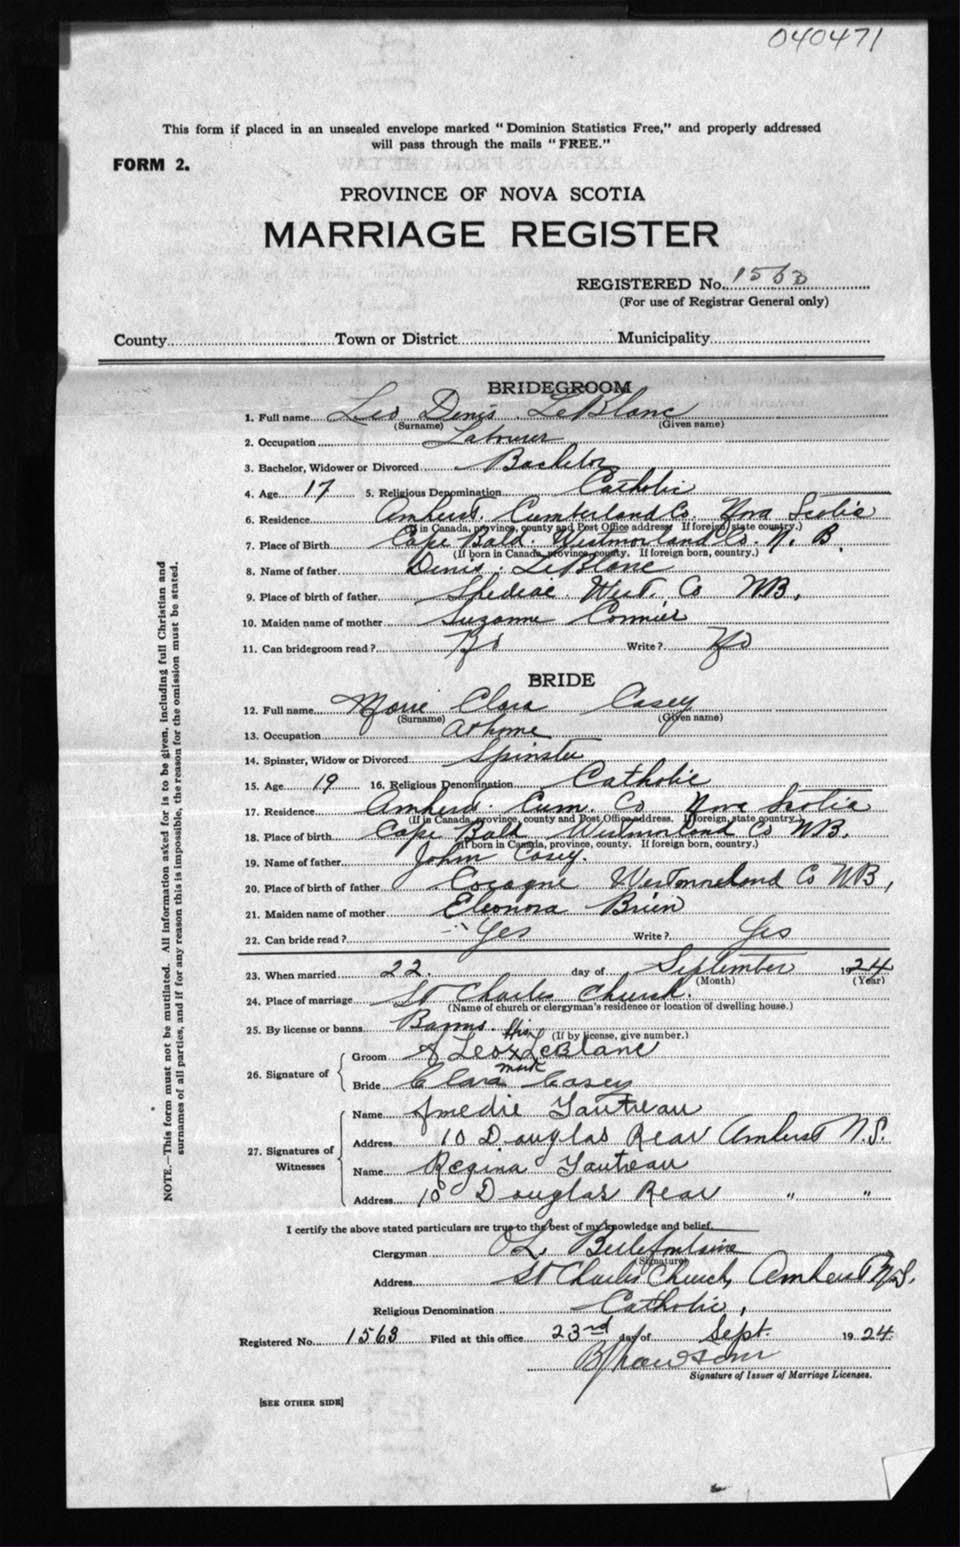 040471
This form if placed in an unsealed envelope marked "Dominion Statistics Free," and properly addressed
will pass through the mails "FREE."
FORM 2.
PROVINCE OF NOVA SCOTIA
MARRIAGE REGISTER
REGISTERED No. 1563
(For use of Registrar General only)
County Town or District Municipality
BRIDEGROOM
1. Full name Leo Denis LeBlanc
(Surname) (Given name)
2. Occupation Labourer
3. Bachelor, Widower or Divorced Bachelor
4. Age 17 5. Religious Denomination Catholic
6. Residence Amherst. Cumberland Co. Nova Scotia
(If in Canada, province, county and Post Office address. If foreign, state country.)
7. Place of Birth Cape Bald. Westmorland Co. N. B.
(If born in Canada, province, county. If foreign born, country.)
8. Name of father Denis LeBlanc
9. Place of birth of father Shediac West. Co NB,
10. Maiden name of mother Suzanne Cormier
11. Can bridegroom read? No Write? No
BRIDE
12. Full name Marie Clara Casey
(Surname) (Given name)
13. Occupation At home
14. Spinster, Widow or Divorced Spinster
15. Age 19 16. Religious Denomination Catholic
17. Residence Amherst. Cum. Co Nova Scotia
(If in Canada, province, county and Post Office address. If foreign, state country.)
18. Place of birth Cape Bald Westmorland Co NB.
(If born in Canada, province, county. If foreign born, country.)
19. Name of father John Casey.
20. Place of birth of father Cocagne Westmoreland Co NB,
21. Maiden name of mother Eleonora Brien
22. Can bride read? Yes Write? Yes
23. When married 22. day of September 1924
(Month) (Year)
24. Place of marriage St Charles Church.
(Name of church or clergyman's residence or location of dwelling house.)
25. By license or banns Banns. (If by license, give number.)
his
26. Signature of Groom Leo x LeBlanc
mark
Bride Clara Casey
27. Signatures of Witnesses Name Amedie Gautreau
Address 10 Douglas Rear Amherst N.S.
Name Regina Gautreau
Address 10 Douglas Rear " "
I certify the above stated particulars are true to the best of my knowledge and belief.
Clergyman Bellefontaine
(Signature)
Address St Charles Church, Amherst N.S.
Religious Denomination Catholic,
Registered No. 1563 Filed at this office 23rd day of Sept. 1924.
Signature of Issuer of Marriage Licenses.
[SEE OTHER SIDE]
NOTE. This form must not be mutilated. All information asked for is to be given, including full Christian and
surnames of all parties, and if for any reason this is impossible, the reason for the omission must be stated.